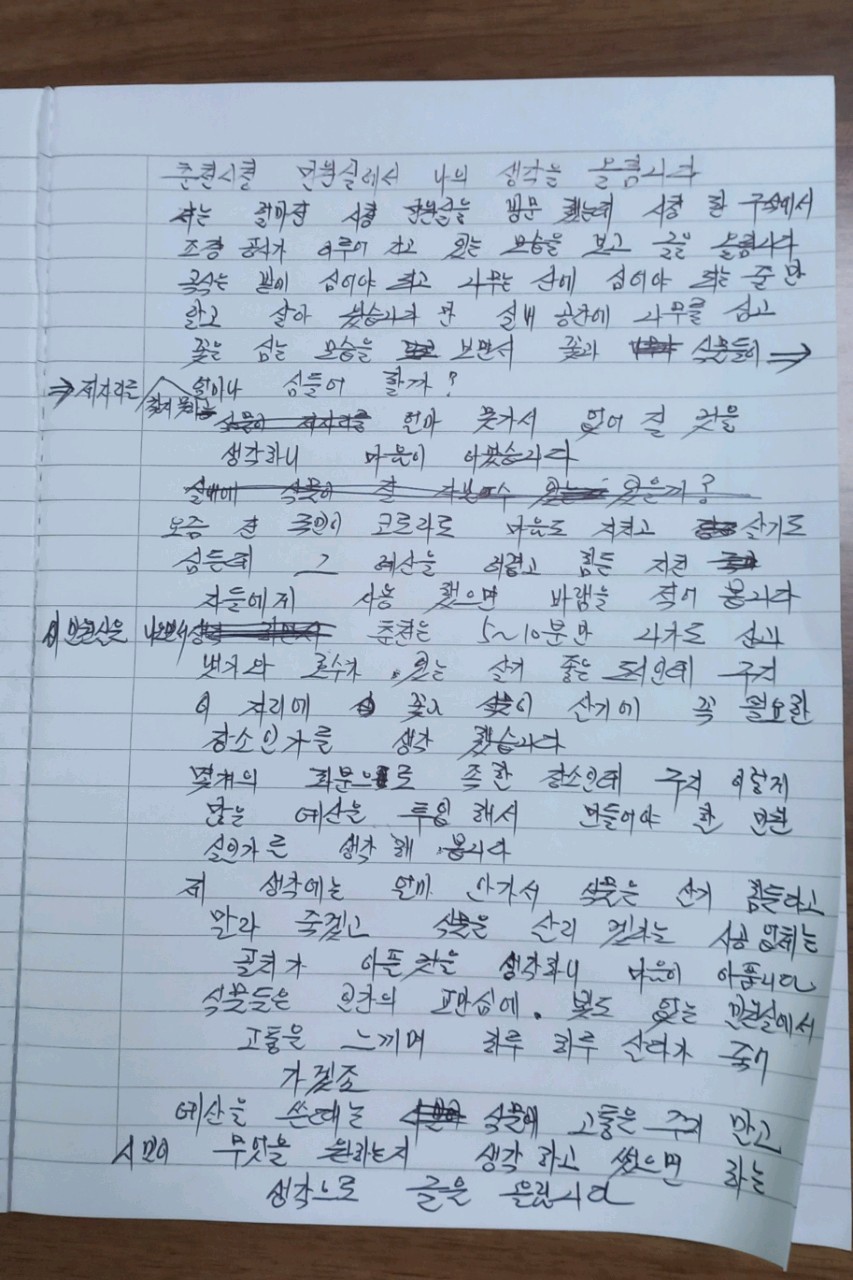 춘천시청 민원실에서 나의 생각을 올립니다
저는 얼마전 시청 민원실을 방문 했는데 시청 한 구석에서
조경 공사가 이루어 지고 있는 모습을 보고 글을 올립니다
곡식는 밭에 심어야 하고 나무는 산에 심어야 하는 줄 만
알고 살아 왔습니다 만 실내 공간에 나무를 심고
꽃을 심는 모습을 보면서 꽃과 식물들이 ⇒
⇒ 제자리를 찾지 못하고 얼마나 힘들어 할까?
얼마 못가서 없어 질 것을
생각하니 마음이 아팠습니다
실내에 식물이 잘 자랄 수 있을까?
요즘 전 국민이 코로나로 마음도 지치고 살기도
힘든데 그 예산을 어렵고 힘든 지친
자들에게 사용 했으면 바램을 적어 봅니다
이 민원실을 나오면서 춘천은 5~10분만 나가도 산과
냇가와 호수가 있는 살기 좋은 도시인데 구지
이 자리에 꽃과 식물이 살기에 꼭 필요한
장소인가를 생각 했습니다
몇개의 화분으로 족한 장소인데 구지 이렇게
많은 예산을 투입 해서 만들어야 할 민원
실인가를 생각 해 봅니다
제 생각에는 얼마 안가서 식물은 살기 힘들다고
말라 죽겠고 식물을 살리 겠다는 시공 업체는
골치가 아플 것을 생각하니 마음이 아픕니다
식물들은 인간의 교만심에 빛도 없는 민원실에서
고통을 느끼며 하루 하루 살다가 죽어
가겠죠
예산을 쓸때는 식물에 고통을 주지 말고
시민이 무엇을 원하는지 생각 하고 썼으면 하는
생각으로 글을 올립니다